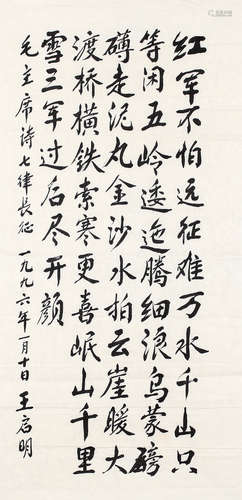 红军不怕远征难万水千山只
等闲五岭逶迤腾细浪乌蒙磅
礴走泥丸金沙水拍云崖暖大
渡桥横铁索寒更喜岷山千里
雪三军过后尽开颜
毛主席诗七律長征 一九九六年一月十日 王启明